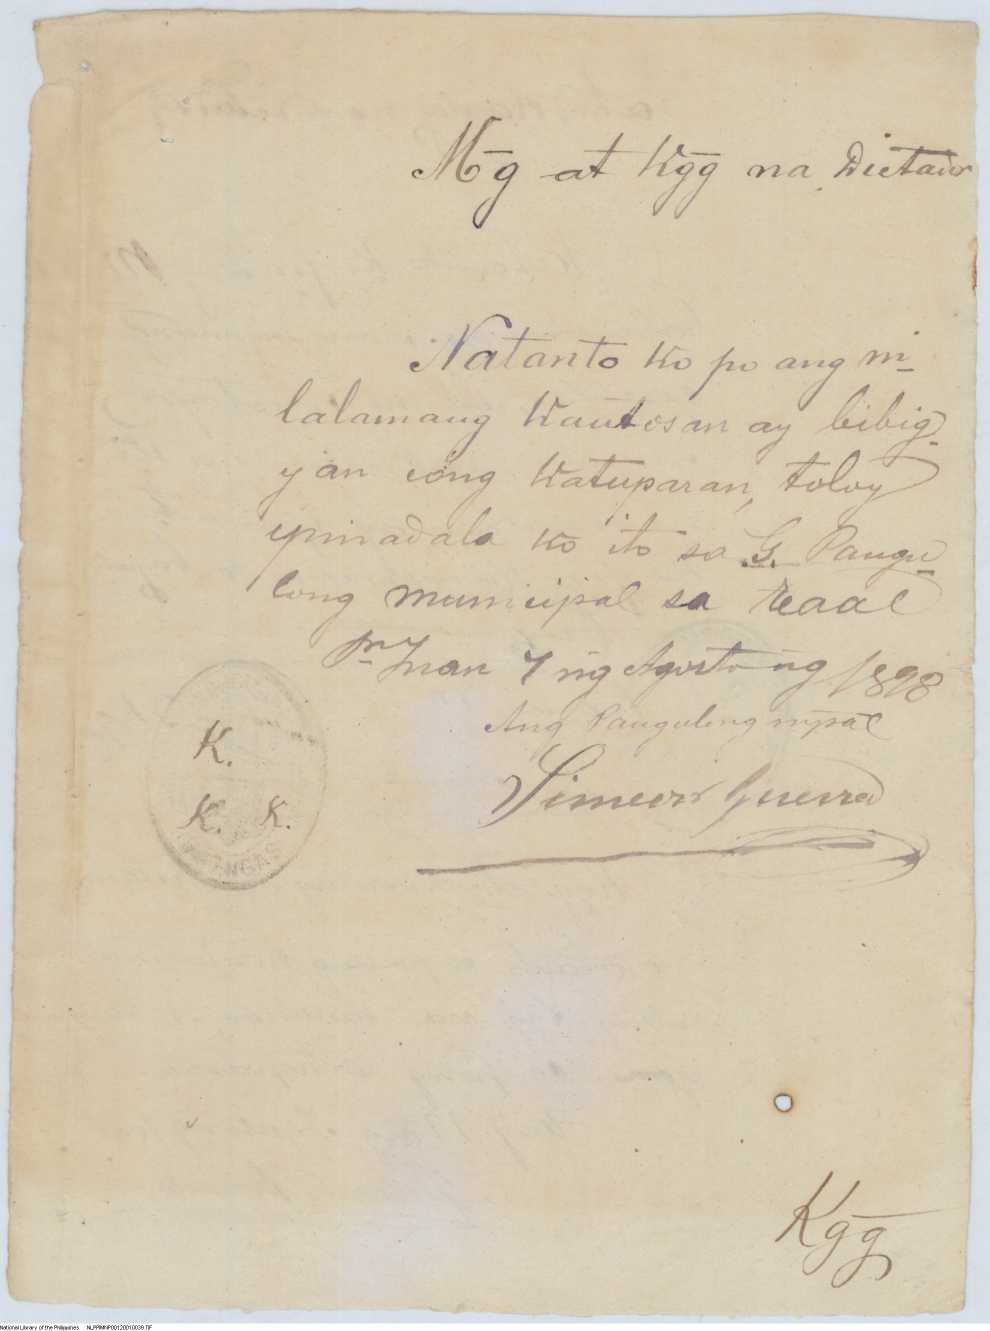 M̄g at Kgḡ na Dictador
Natanto ko po ang ni-
lalamang Kautosan ay bibig-
yan cong katuparan, toloy
ypinadala ko ito sa G. Pangu-
long municipal sa Taal
Sn Juan 7 ng Agosto ng 1898
Ang Pangulong mpal
Simeon Guerra
K.
K. K.
BATANGAS
Kgḡ
National Library of the Philippines NLPPIMNP00120010039.TIF